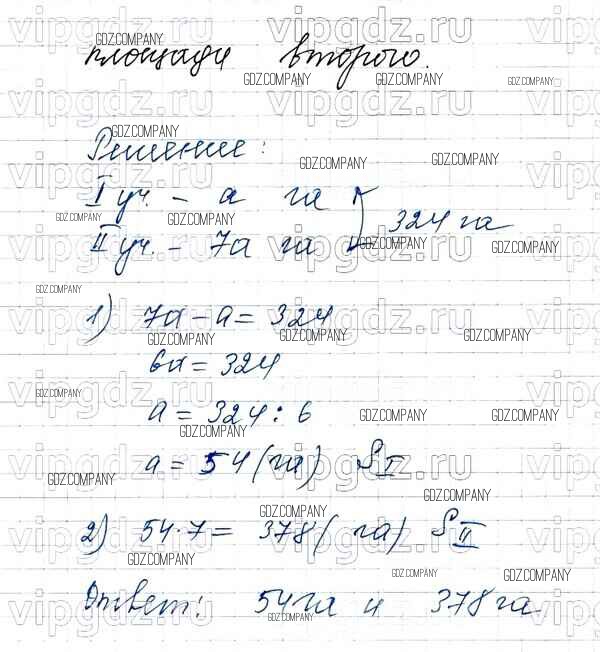 площади второго.
Решение:
I уч. - а га
II уч. - 7а га
324 га
1) 7а - а = 324
6а = 324
а = 324 : 6
а = 54 (га) S I
2) 54 · 7 = 378 (га) S II
Ответ: 54 га и 378 га
vipgdz.ru
GDZ.COMPANY